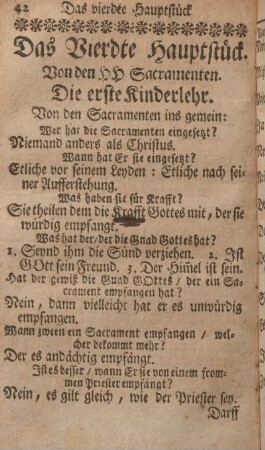 42 Das vierdte Hauptstück
Das Vierdte Hauptstück.
Von den HH Sacramenten.
Die erste Kinderlehr.
Von den Sacramenten ins gemein:
Wer hat die Sacramenten eingesetzt?
Niemand anders als Christus.
Wann hat Er sie eingesetzt?
Etliche vor seinem Leyden: Etliche nach sei-
ner Aufferstehung.
Was haben sie für Krafft?
Sie theilen dem die Krafft Gottes mit, der sie
würdig empfangt.
Was hat der/der die Gnad Gottes hat?
1. Seynd ihm die Sünd verziehen. 2. Ist
GOtt sein Freund. 3. Der Him̃el ist sein.
Hat der gewiß die Gnad GOttes / der ein Sa-
crament empfangen hat?
Nein, dann vielleicht hat er es unwürdig
empfangen.
Wann zween ein Sacrament empfangen / wel-
cher bekommt mehr?
Der es andächtig empfängt.
Ist es besser / wann Er sie von einem from-
men Priester empfängt?
Nein, es gilt gleich, wie der Priester sey.
Darff